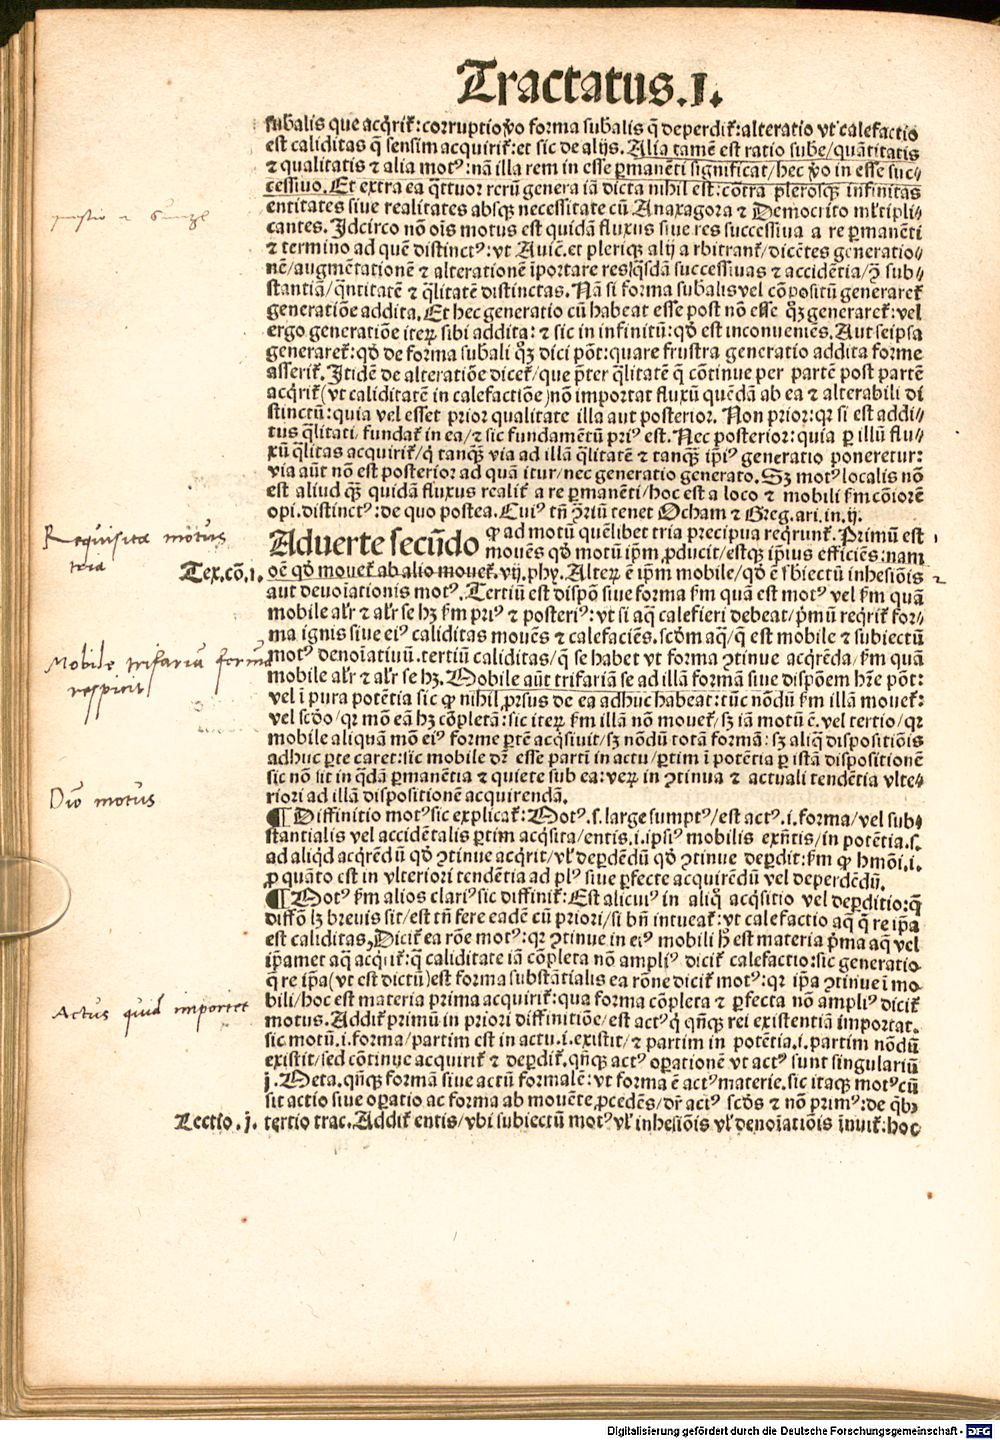 Tractatus.I.
subalis que acq̄rit̃:corruptio ṽo forma subalis q̃ deperdit̃:alteratio vt calefactio
est caliditas q̃ sensim acquirit̃:et sic de alijs. Alia tamē est ratio sube/quãtitatis
⁊ qualitatis ⁊ alia motꝰ:nã illa rem in esse ꝑmanēti significat/hec ṽo in esse suc⸗
cessiuo. Et extra ea q̃ttuor rerū genera iã dicta nihil est:contra plerosqꝫ infinitas
entitates siue realitates absqꝫ necessitate cū Anaxagora ⁊ Democrito ml̃tipli⸗
cantes. Idcirco nō oīs motus est quidã fluxus siue res successiua a re ꝑmanēti
⁊ termino ad quē distinctꝰ:vt Auic̄.et pleriqꝫ alij arbitrant̃/dicētes generatio⸗
nē/augmētationē ⁊ alterationē īportare res q̃sdã successiuas ⁊ accidētia/ꝫ sub⸗
stantiã/q̃ntitatē ⁊ q̃litatē distinctas. Nã si forma subalis vel cōpositū generaret̃
generatiōe addita. Et hec generatio cū habeat esse post nō esse qꝫ generaret̃:vel
ergo generatiōe iteꝝ sibi addita: ⁊ sic in infinitū:qd̃ est inconueniēs. Aut seipsa
generaret̃:qd̃ de forma subali qꝫ dici pōt:quare frustra generatio addita forme
asserit̃. Itidē de alteratiōe dicet̃/que p̃ter q̃litatē q̃ cōtinue per partē post partē
acq̃rit̃(vt caliditatē in calefactiōe)nō importat fluxū quēdã ab ea ⁊ alterabili di
stinctū:quia vel esset prior qualitate illa aut posterior. Non prior:qr si est addi⸗
tus q̃litati/fundat̃ in ea/⁊ sic fundamētū priꝰ est. Nec posterior:quia ꝑ illū flu⸗
xū q̃litas acquirit̃/q̃ tanqꝫ via ad illã q̃litatē ⁊ tanqꝫ ip̃iꝰ generatio poneretur:
via aūt nō est posterior ad quã itur/nec generatio generato. Sꝫ motꝰ localis nō
est aliud qꝫ quidã fluxus realit̃ a re ꝑmanēti/hoc est a loco ⁊ mobili ẜm cōiorē
opi.distinctꝰ:de quo postea. Cuiꝰ tñ ꝯriū tenet Ocham ⁊ Greg.ari.in.ij.
Aduerte secūdo ꝙ ad motū quēlibet tria precipua req̃runt̃. Primū est
mouēs qd̃ motū ip̃m ꝓducit/estqꝫ ip̃ius efficiēs:nam
Tex.cō.1. oē qd̃ mouet̃ ab alio mouet̃.vij.phy. Alteꝝ ē ip̃m mobile/qd̃ ē s̃biectū inhesiōis
aut denoīationis motꝰ. Tertiū est dispō siue forma ẜm quã est motꝰ vel ẜm quã
mobile al̃r ⁊ al̃r se hꝫ ẜm priꝰ ⁊ posteriꝰ: vt si aq̃ calefieri debeat/p̃mū req̃rit̃ for⸗
ma ignis siue eiꝰ caliditas mouēs ⁊ calefaciēs.scd̃m aq̃/q̃ est mobile ⁊ subiectū
motꝰ denoīatiuū.tertiū caliditas/q̃ se habet vt forma ꝯtinue acq̃rēda/ẜm quã
mobile al̃r ⁊ al̃r se hꝫ. Mobile aūt trifariã se ad illã formã siue dispōem hr̃e pōt:
vel ī pura potētia sic ꝙ nihil ꝓrsus de ea adhuc habeat:tūc nōdū ẜm illã mouet̃:
vel scd̃o/qr mō eã hꝫ cōpletã:sic iteꝝ ẜm illã nō mouet̃/sꝫ iã motū ē.vel tertio/qr
mobile aliquã mō eiꝰ forme ꝑtē acq̃siuit/sꝫ nōdū totã formã: sꝫ aliq̃ dispositiōis
adhuc ꝑte caret:sic mobile dr̃ esse partī in actu/ꝑtim ī potētia ꝑ istã dispositionē
sic nō sit in q̃dã ꝑmanētia ⁊ quiete sub ea:veꝝ in ꝯtinua ⁊ actuali tendētia vlte⸗
riori ad illã dispositionē acquirendã.
¶ Diffinitio motꝰ sic explicat̃: Motꝰ.s.large sumptꝰ/est actꝰ.i.forma/vel sub⸗
stantialis vel accidētalis ꝑtim acq̃sita/entis.i.ipsiꝰ mobilis exñtis/in potētia.s.
ad aliq̃d acq̃rēdū qd̃ ꝯtinue acq̃rit/vl̃ deꝑdēdū qd̃ ꝯtinue deꝑdit:ẜm ꝙ hmōi.i.
ꝓ quãto est in vlteriori tendētia ad plꝰ siue ꝑfecte acquirēdū vel deperdēdū.
¶ Motꝰ ẜm alios clariꝰ sic diffinit̃: Est alicuiꝰ in aliq̃ acq̃sitio vel deꝑditio:q̃
diffō lꝫ breuis sit/est tñ fere eadē cū priori/si bñ intueat̃:vt calefactio aq̃ q̃ re ip̃a
est caliditas. Dicit̃ ea rōe motꝰ:qr ꝯtinue in eiꝰ mobili h̃ est materia p̃ma aq̃ vel
ip̃amet aq̃ acq̃rit̃:q̃ caliditate iã cōpleta nō ampliꝰ dicit̃ calefactio:sic generatio
q̃ re ip̃a(vt est dictū)est forma substãtialis ea rōne dicit̃ motꝰ:qr ip̃a ꝯtinue ī mo
bili/hoc est materia prima acquirit̃:qua forma cōpleta ⁊ ꝑfecta nō ampliꝰ dicit̃
motus. Addit̃ primū in priori diffinitiōe/est actꝰ q̃ qñqꝫ rei existentiã importat.
sic motū.i.forma/partim est in actu.i.existit/⁊ partim in potētia.i.partim nōdū
existit/sed cōtinue acquirit̃ ⁊ deꝑdit̃.qñqꝫ actꝰ oꝑationē vt actꝰ sunt singulariū
j. Meta.qñqꝫ formã siue actū formalē:vt forma ē actꝰ materie.sic itaqꝫ motꝰ cū
sit actio siue oꝑatio ac forma ab mouēte ꝓcedēs/dr̃ actꝰ scd̃s ⁊ nō primꝰ:de qbꝫ
Lectio.j. tertio trac. Addit̃ entis/vbi subiectū motꝰ vl̃ inhesiōis vl̃ denoīatiōis īnuit̃:hoc
Requisita motus
tria
Mobile trifariã formã
respicit
Diō motus
Actus quid importet
Digitalisierung gefördert durch die Deutsche Forschungsgemeinschaft - DFG